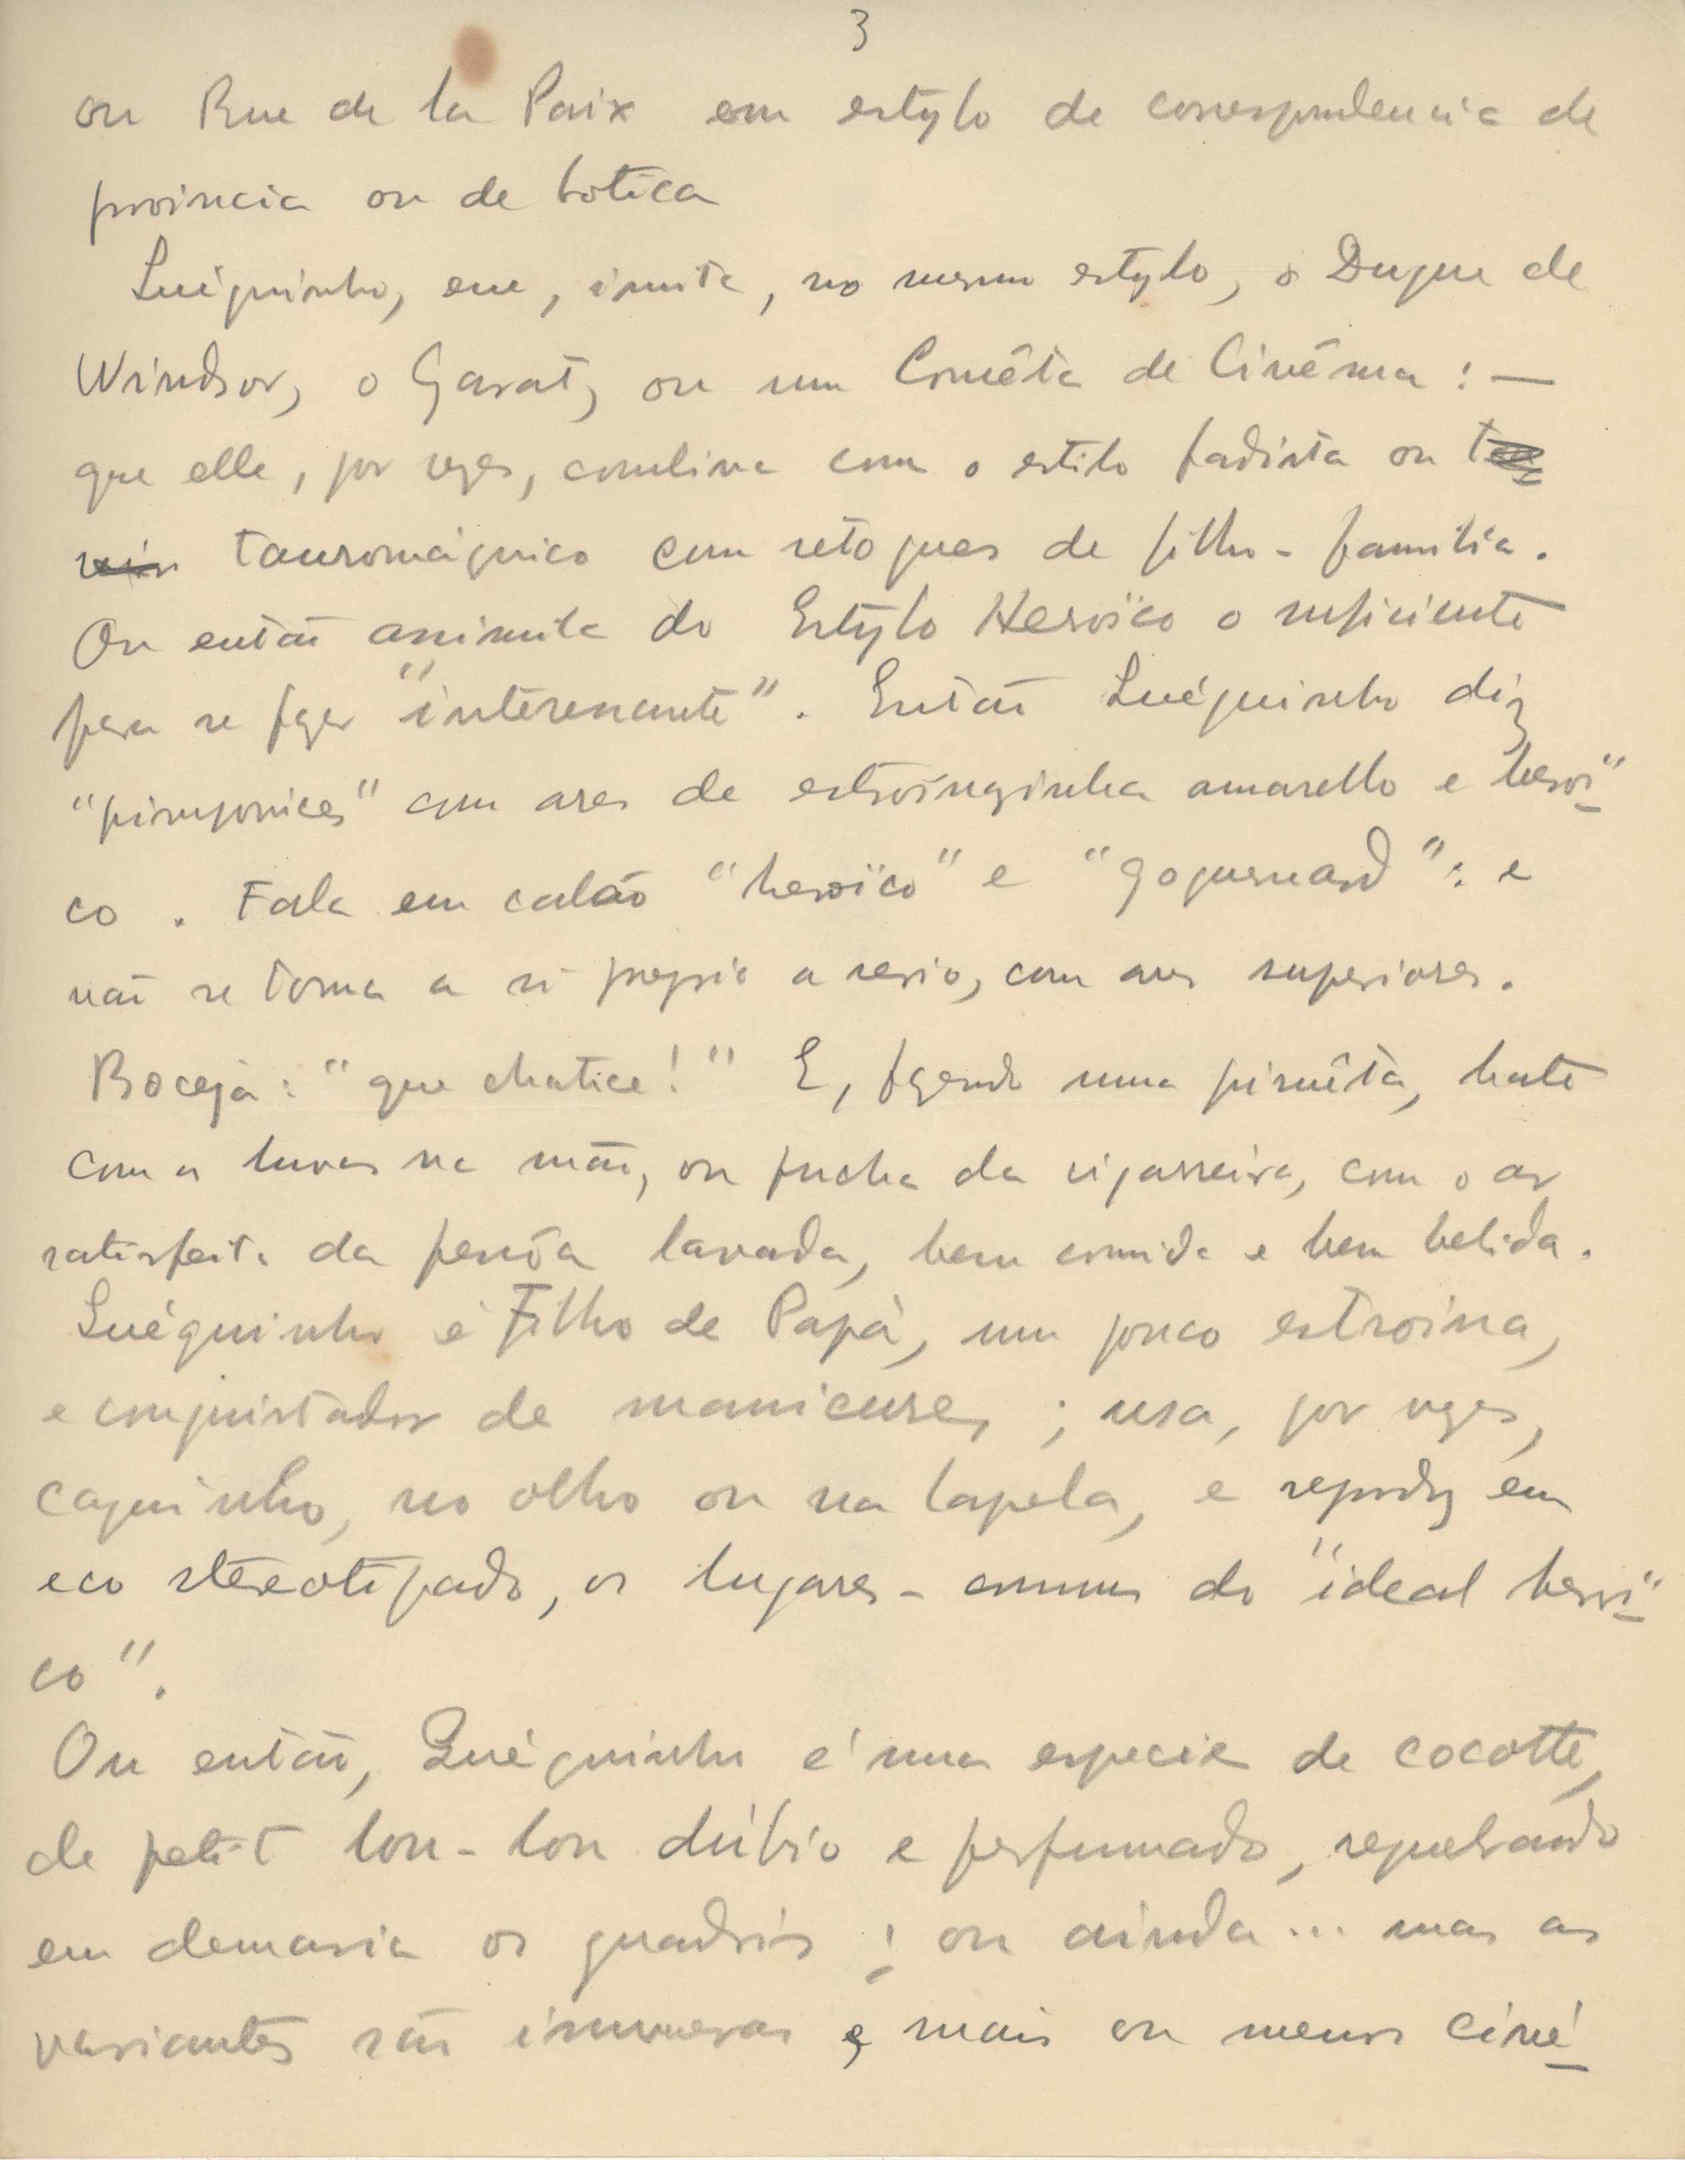 3
ou Rue de la Paix em estylo de correspondencia de
provincia ou de botica
Luéquinho, esse, imita, no mesmo estylo, o Duque de
Windsor, o Garat, ou um Cométa de Cinêma : —
que elle, por vezes, combina com o estilo fadista ou
tauromáquico com retoques de filho-familia.
Ou então assimila do Estylo Heroïco o suficiente
para se fazer "interessante". Então Luéquinho diz
"pimponices" com ares de estroinazinha amarello e heroi"
co. Fala em calão "heroïco" e "goguenard": e
não se toma a si proprio a serio, com ares superiores.
Boceja: "que chatice!" E, fazendo uma piruêta, bate
com as luvas na mão, ou pucha da cigarreira, com o ar
satisfeito da pessôa lavada, bem comida e bem bebida.
Luéquinho é Filho de Papá, um pouco estroina,
e conquistador de manicures; usa, por vezes,
caquinho, no olho ou na lapela, e reproduz em
eco stereotipado, os lugares-comuns do "ideal heroi"
co".
Ou então, Luéquinho é uma especie de cocotte,
de petit lou-lou dúbio e perfumado, requebrando
em demasia os quadris; ou ainda... mas as
variantes são inumeras e mais ou menos ciné-